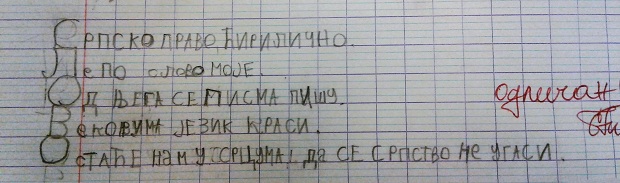 СРПСКО ПРАВО, ЋИРИЛИЧНО.
ЛЕПО СЛОВО МОЈЕ.
ОД ЊЕГА СЕ ПИСМА ПИШУ.
ВЕКОВИМА ЈЕЗИК КРАСИ.
ОСТАЋЕ НАМ У СРЦУМА, ДА СЕ СРПСТВО НЕ УГАСИ.
одличан